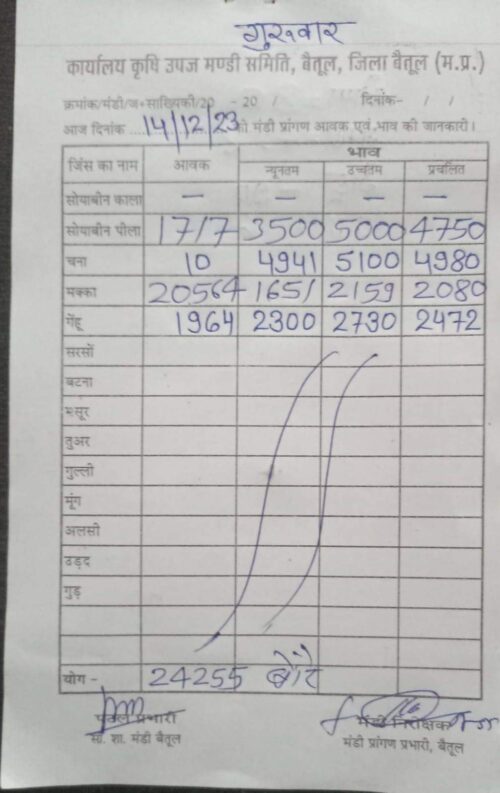 गुरुवार
कार्यालय कृषि उपज मण्डी समिति, बैतूल, जिला बैतूल (म.प्र.)
क्रमांक/मंडी/ज•सांख्यिकी/20 - 20 / दिनांक- / /
आज दिनांक ....14/12/23 को मंडी प्रांगण आवक एवं भाव की जानकारी।
जिंस का नाम आवक भाव
न्यूनतम उच्चतम प्रचलित
सोयाबीन काला — — — —
सोयाबीन पीला 1717 3500 5000 4750
चना 10 4941 5100 4980
मक्का 20564 1651 2159 2080
गेंहू 1964 2300 2730 2472
सरसों
बटना
मसूर
तुअर
गुल्ली
मूंग
अलसी
उड़द
गुड़
योग - 24255 बोरे
प्रभारी मंडी निरीक्षक
स्व. शा. मंडी बैतूल मंडी प्रांगण प्रभारी, बैतूल